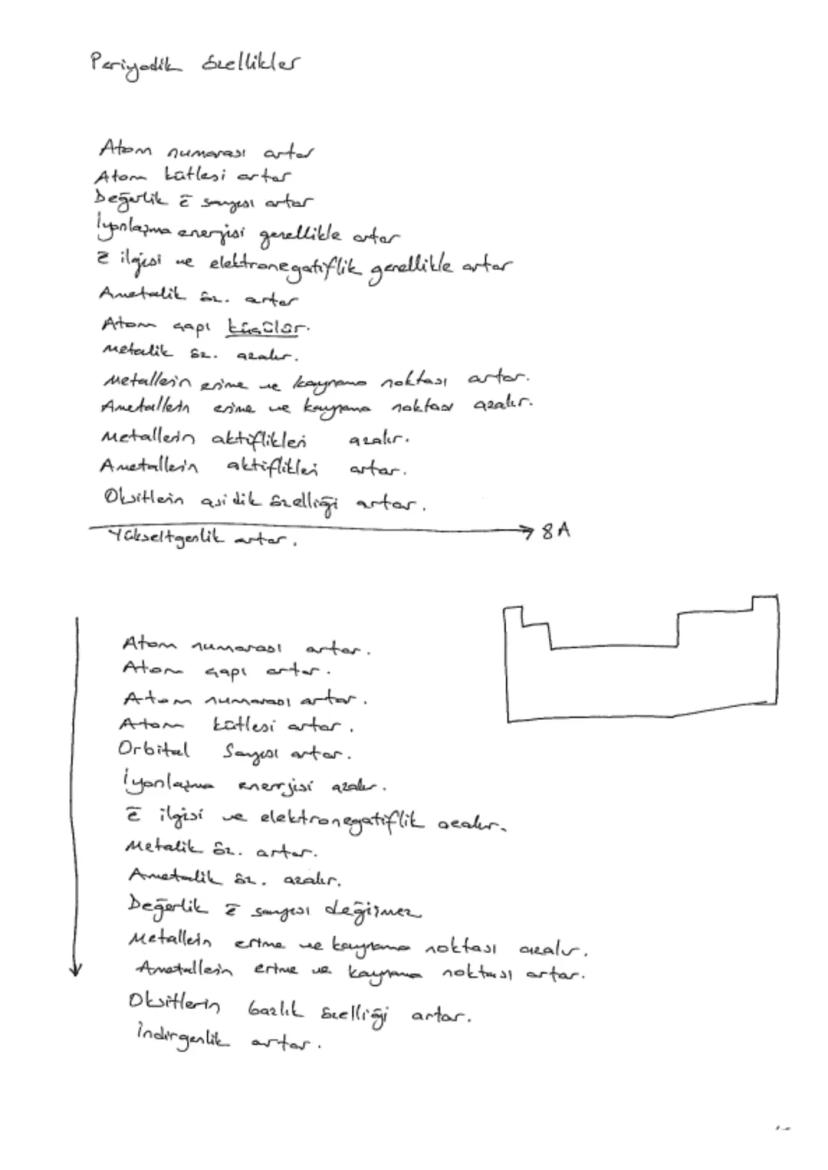 Periyodik Özellikler
Atom numarası artar
Atom kütlesi artar
Değerlik ē sayısı artar
İyonlaşma enerjisi genellikle artar
ē ilgisi ve elektronegatiflik genellikle artar
Ametalik öz. artar
Atom çapı küçülür.
Metalik öz. azalır.
Metallerin erime ve kaynama noktası artar.
Ametallerin erime ve kaynama noktası azalır.
Metallerin aktiflikleri azalır.
Ametallerin aktiflikleri artar.
Oksitlerin asidik özelliği artar.
8A
Yükseltgenlik artar.
Atom numarası artar.
Atom çapı artar.
Atom numarası artar.
Atom kütlesi artar.
Orbital Sayısı artar.
İyonlaşma enerjisi azalır.
ē ilgisi ve elektronegatiflik azalır.
Metalik öz. artar.
Ametalik öz. azalır.
Değerlik ē sayısı değişmez
Metallerin erime ve kaynama noktası azalır.
Ametallerin erime ve kaynama noktası artar.
Oksitlerin bazlık özelliği artar.
İndirgenlik artar.